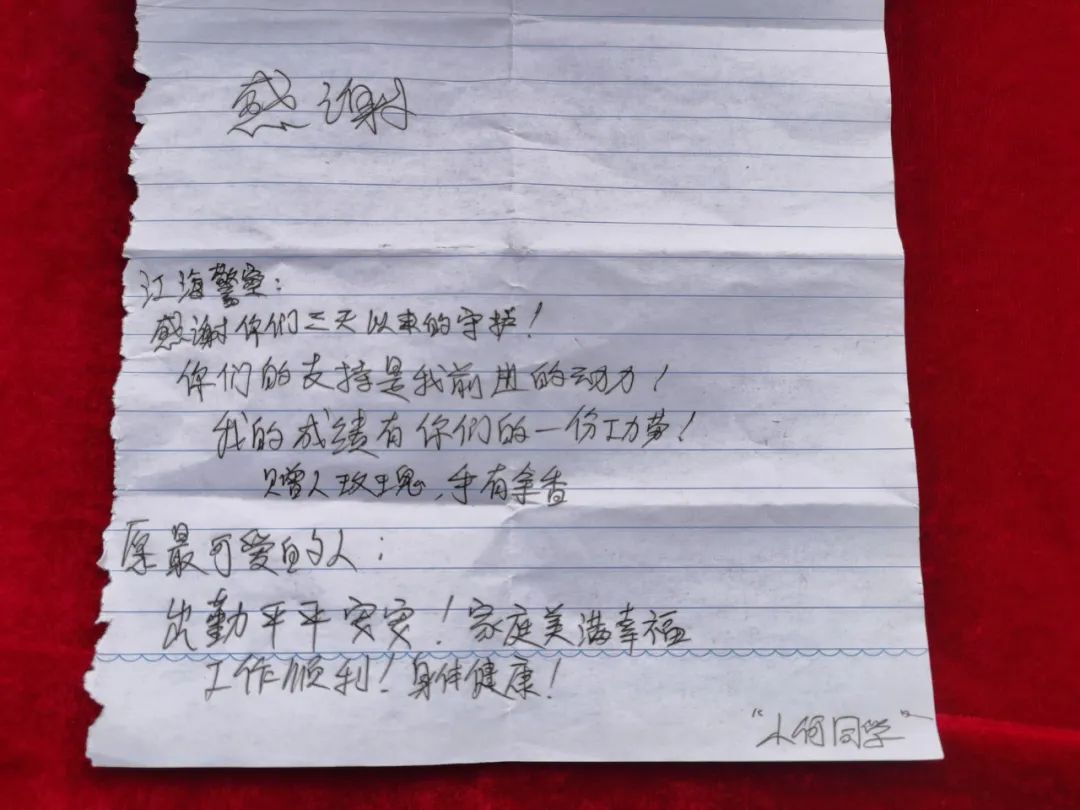 感谢
江海警察:
感谢你们三天以来的守护!
你们的支持是我前进的动力!
我的成绩有你们的一份功劳!
赠人玫瑰,手有余香
愿最可爱的人:
出勤平平安安!家庭美满幸福
工作顺利!身体健康!
"小何同学"